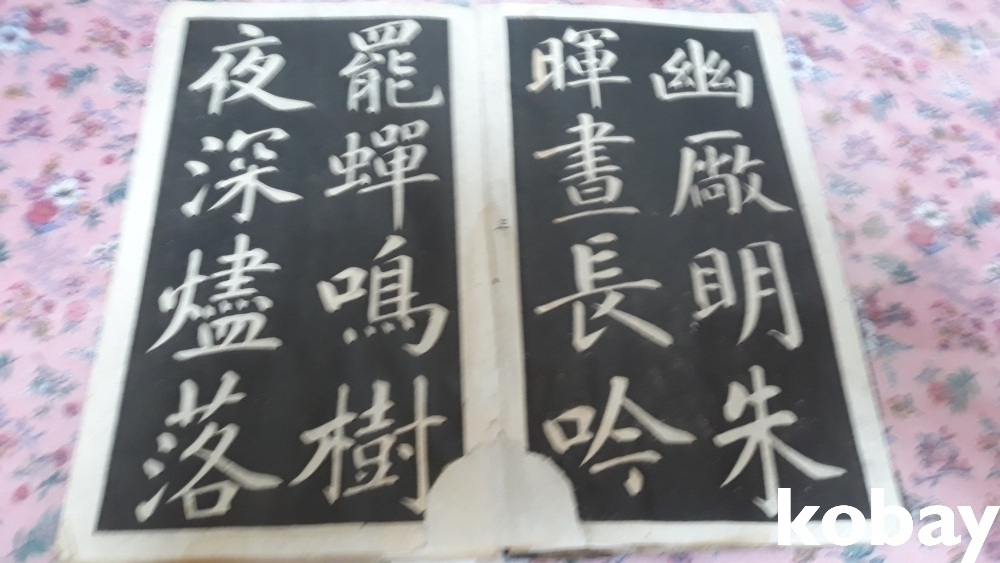 幽厰明朱
暉晝長吟
三
罷蟬鳴樹
夜深燼落
kobay